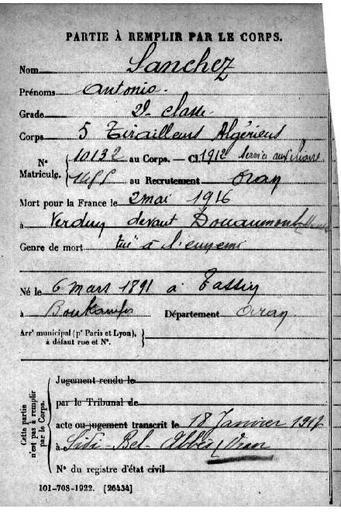 PARTIE À REMPLIR PAR LE CORPS.
Nom Sanchez
Prénoms Antonio.
Grade 2e classe
Corps 5 Tirailleurs Algériens
N° 10132 au Corps. — Cl. 1912 Service auxiliaire
Matricule. 1455 au Recrutement Oran
Mort pour la France le 2 mai 1916
à Verdun devant Douaumont
Genre de mort tué à l'ennemi
Né le 6 mars 1891 à Tassin
à Boukanefis Département Oran
Arrt municipal (pr Paris et Lyon),
à défaut rue et N°.
Cette partie
n'est pas à remplir
par le Corps.
Jugement rendu le
par le Tribunal de
acte ou jugement transcrit le 18 Janvier 1917
à Sidi-Bel-Abbès, Oran
N° du registre d'état civil
101-708-1922. [26434]